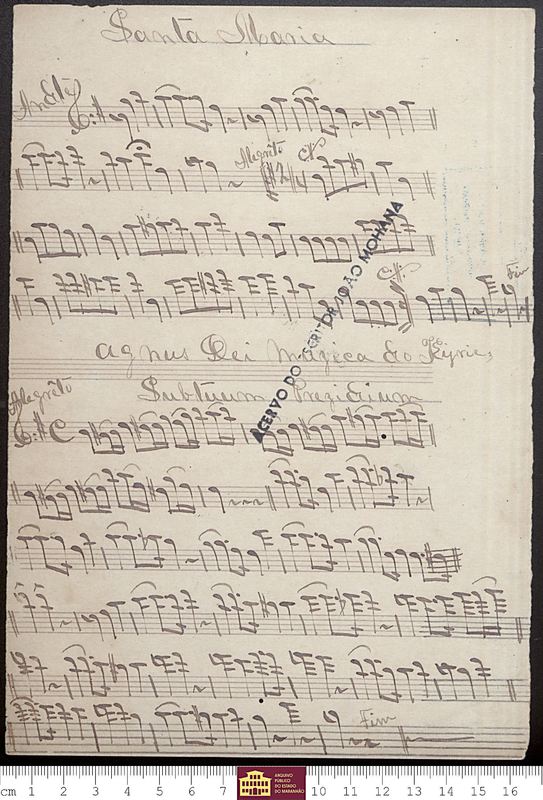 Santa Maria
And.te
Alegrêto
Fim
Agnus Dei Muzeca do Kyrie,
Alegrêto
Subtuum Prezidium
C
ACERVO DO ESCRITOR JOÃO MOHANA
Fim
cm 1 2 3 4 5 6 7 10 11 12 13 14 15 16
ARQUIVO
PÚBLICO
DO ESTADO
DO MARANHÃO